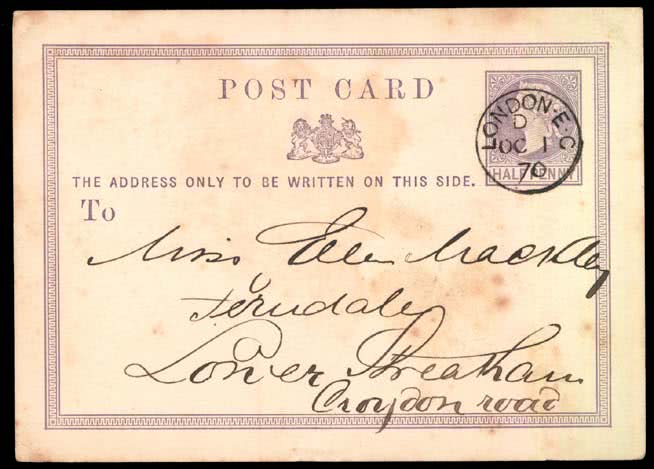 POST CARD
LONDON·E·C
D
OC 1
70
HALFPENNY
THE ADDRESS ONLY TO BE WRITTEN ON THIS SIDE.
To
Miss Ellen Mackley
Ferndale
Lower Streatham
Croydon road